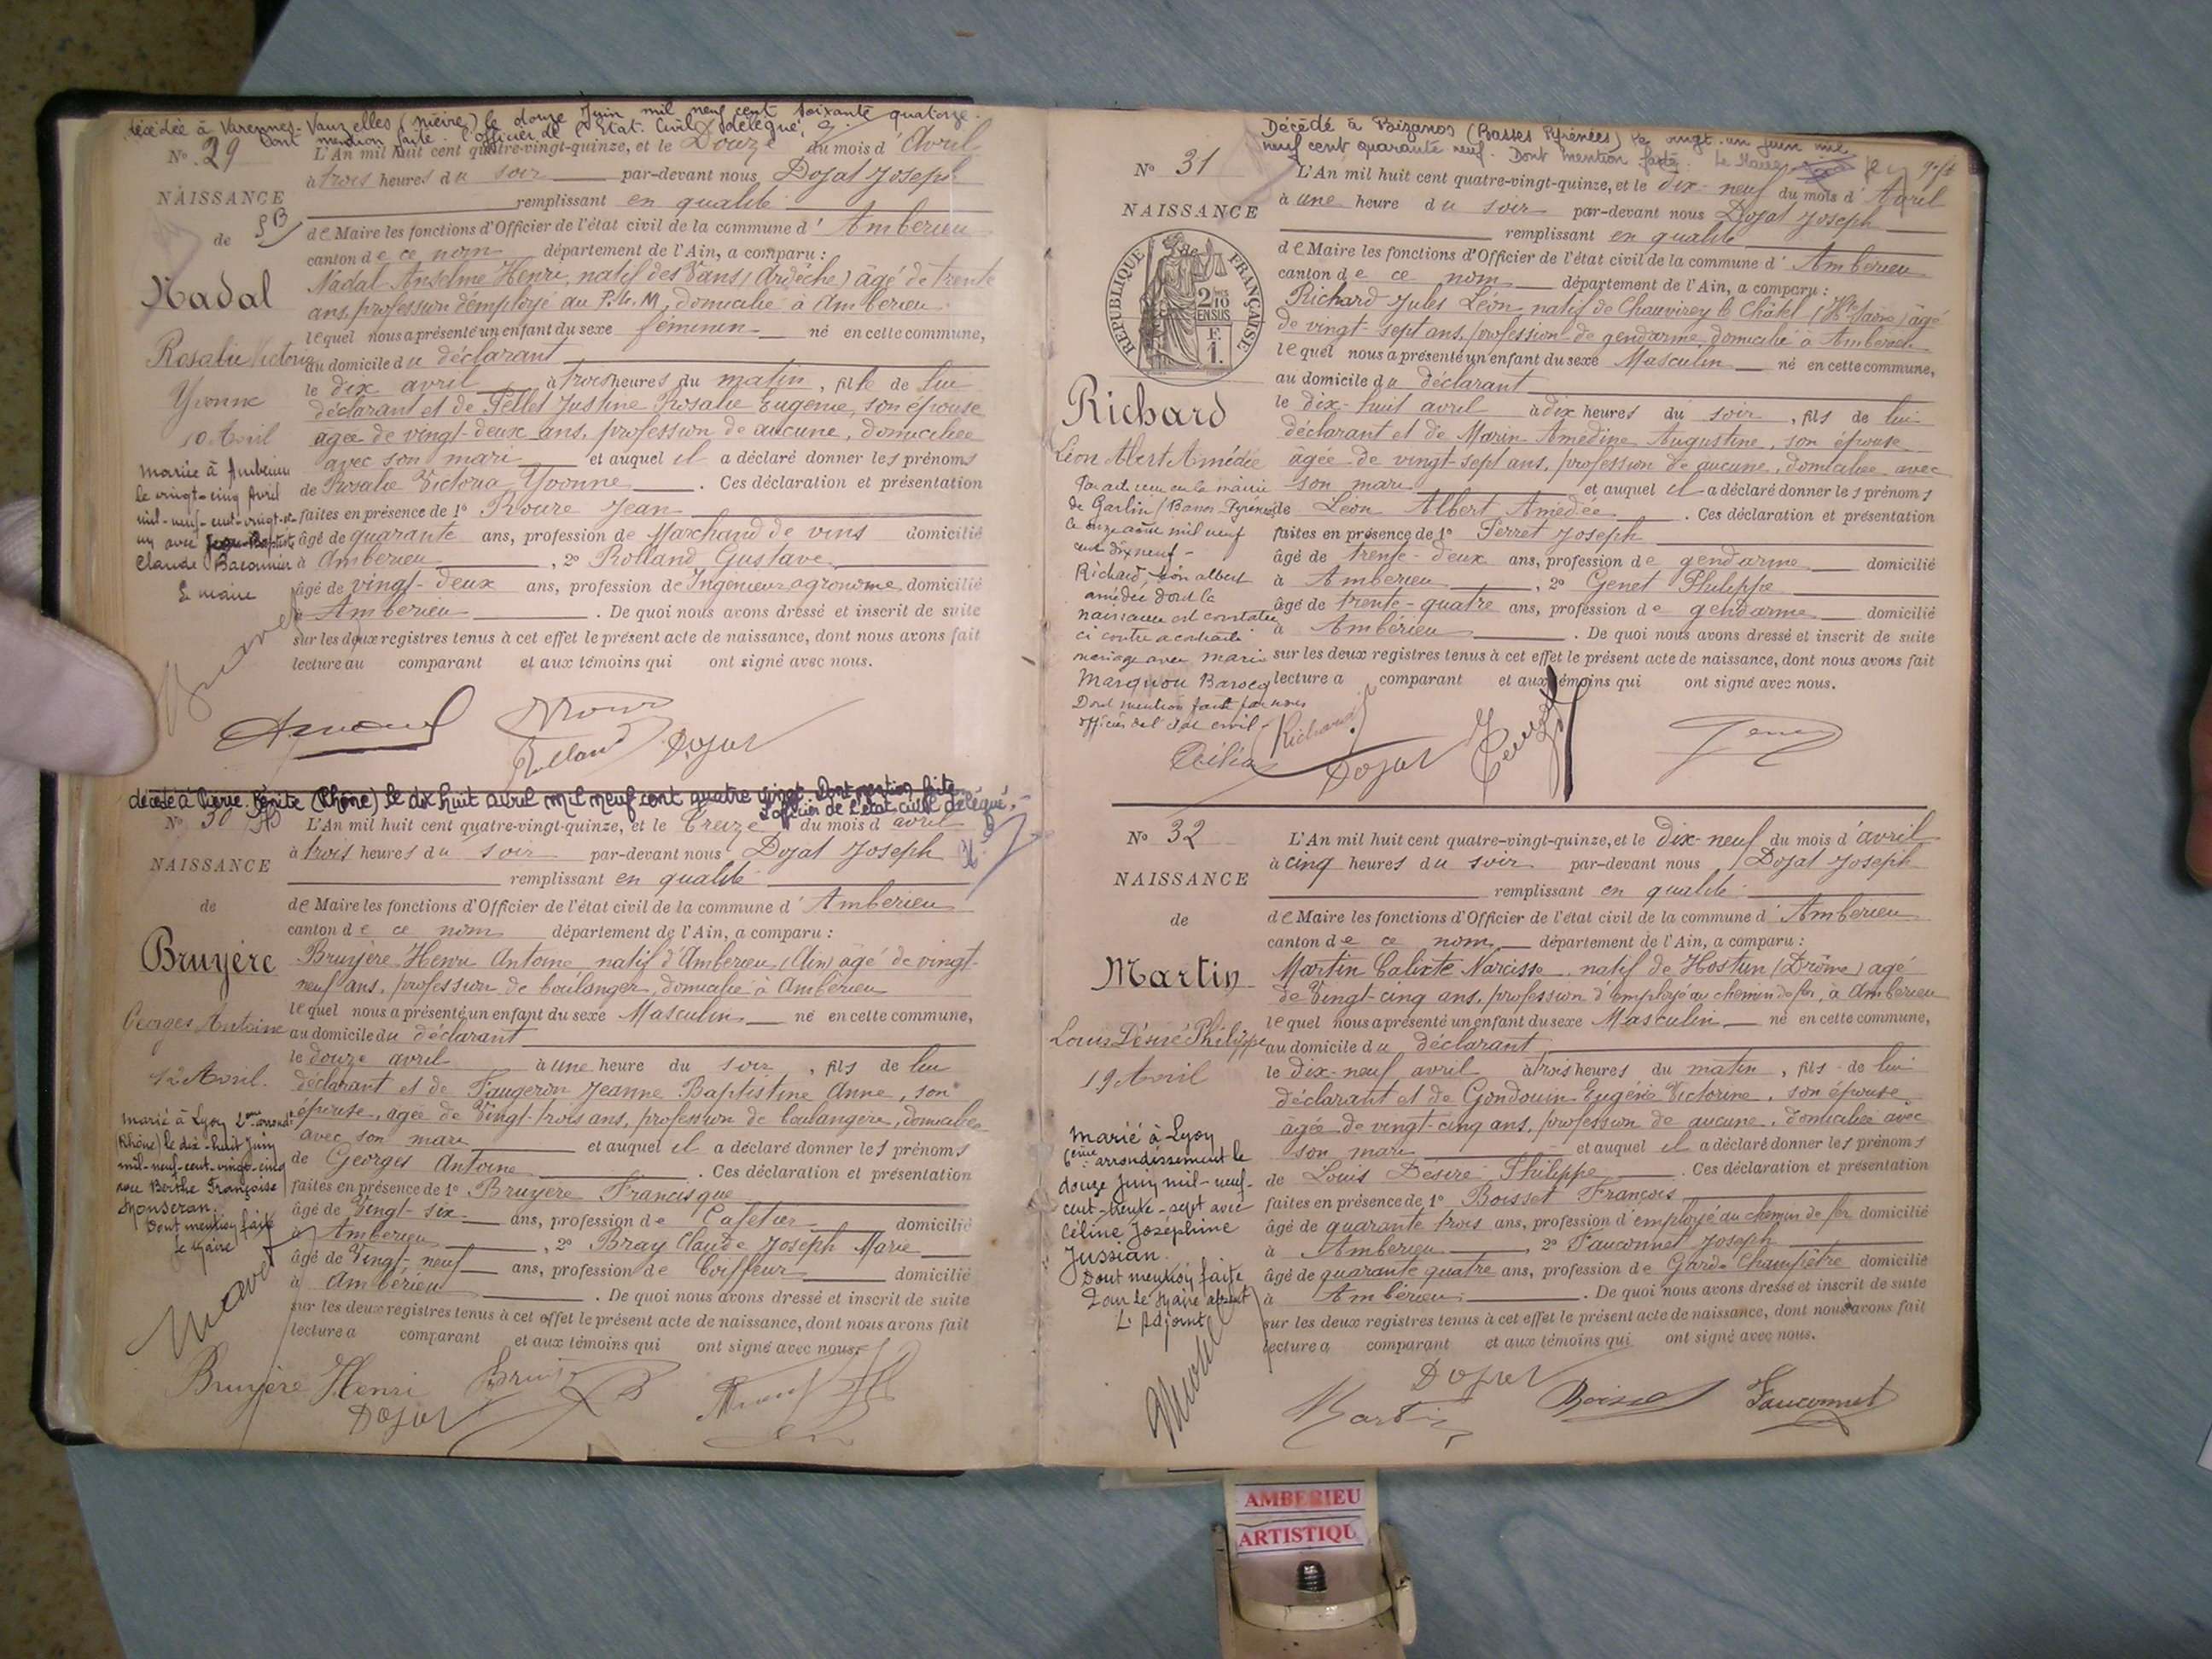 décédée à Varennes-Vauzelles (Nièvre) le douze Juin mil neuf cent soixante quatorze.
Dont mention faite. l'officier de l'Etat Civil délégué,
No 29
NAISSANCE
de
Nadal
Rosalie Victoria
Yvonne
10 Avril
mariée à Ambérieu
le vingt-cinq Avril
mil-neuf-cent-vingt-et-
un avec Jean-Baptiste
Claude Baconnier
Le maire
L'An mil huit cent quatre-vingt-quinze, et le Douze du mois d'Avril
à trois heures du soir par-devant nous Dojat Joseph
remplissant en qualité
de Maire les fonctions d'Officier de l'état civil de la commune d'Ambérieu
canton de ce nom département de l'Ain, a comparu :
Nadal Anselme Henri, natif des Vans (Ardèche) âgé de trente
ans, profession d'employé au P.L.M, domicilié à Ambérieu
lequel nous a présenté un enfant du sexe féminin né en cette commune,
au domicile du déclarant
le dix avril à trois heures du matin, fille de lui
déclarant et de Pellet Justine Rosalie Eugénie, son épouse
âgée de vingt-deux ans, profession de aucune, domiciliée
avec son mari et auquel il a déclaré donner les prénoms
de Rosalie Victoria Yvonne. Ces déclaration et présentation
faites en présence de 1o Roure Jean
âgé de quarante ans, profession de Marchand de vins domicilié
à Ambérieu, 2o Rolland Gustave
âgé de vingt-deux ans, profession de Ingénieur agronome domicilié
à Ambérieu. De quoi nous avons dressé et inscrit de suite
sur les deux registres tenus à cet effet le présent acte de naissance, dont nous avons fait
lecture au comparant et aux témoins qui ont signé avec nous.
Rolland Dojat
décédé à Pierre-Bénite (Rhône) le dix huit avril mil neuf cent quatre vingt. Dont mention faite
L'officier de l'état civil délégué,
No 30
NAISSANCE
de
Bruyère
Georges Antoine
12 Avril.
marié à Lyon 2ème arrondt
(Rhône) le dix-huit Juin
mil-neuf-cent-vingt-cinq
avec Berthe Françoise
Monseran
Dont mention faite
Le Maire
L'An mil huit cent quatre-vingt-quinze, et le Treize du mois d'avril
à trois heures du soir par-devant nous Dojat Joseph
remplissant en qualité
de Maire les fonctions d'Officier de l'état civil de la commune d'Ambérieu
canton de ce nom département de l'Ain, a comparu :
Bruyère Henri Antoine natif d'Ambérieu (Ain) âgé de vingt-
neuf ans, profession de boulanger, domicilié à Ambérieu
lequel nous a présenté un enfant du sexe Masculin né en cette commune,
au domicile du déclarant
le douze avril à une heure du soir, fils de lui
déclarant et de Faugeron Jeanne Baptistine Anne, son
épouse, âgée de Vingt-trois ans, profession de boulangère, domiciliée
avec son mari et auquel il a déclaré donner les prénoms
de Georges Antoine. Ces déclaration et présentation
faites en présence de 1o Bruyère Francisque
âgé de Vingt-six ans, profession de Cafetier domicilié
à Ambérieu, 2o Bray Claude Joseph Marie
âgé de Vingt-neuf ans, profession de Coiffeur domicilié
à Ambérieu. De quoi nous avons dressé et inscrit de suite
sur les deux registres tenus à cet effet le présent acte de naissance, dont nous avons fait
lecture a comparant et aux témoins qui ont signé avec nous.
Bruyère Henri
Dojat
Décédé à Bizanos (Basses Pyrénées) le vingt-un Juin mil
neuf cent quarante neuf. Dont mention faite. Le Maire
No 31
NAISSANCE
de
RÉPUBLIQUE FRANÇAISE
2/10
EN SUS
F.
1.
Richard
Léon Albert Amédée
Par acte reçu en la mairie
de Garlin (Basses Pyrénées)
le onze août mil neuf
cent dix neuf
Richard Léon albert
amédée dont la
naissance est constatée
ci contre a contracté
mariage avec marie
Marquou Barocq
Dont mention faite par nous
officier de l'état civil
L'An mil huit cent quatre-vingt-quinze, et le dix-neuf du mois d'Avril
à une heure du soir par-devant nous Dojat Joseph
remplissant en qualité
de Maire les fonctions d'Officier de l'état civil de la commune d'Ambérieu
canton de ce nom département de l'Ain, a comparu :
Richard Jules Léon natif de Chauvirey le Châtel (Hte Saône) âgé
de vingt-sept ans, profession de gendarme, domicilié à Ambérieu
lequel nous a présenté un enfant du sexe Masculin né en cette commune,
au domicile du déclarant
le dix-huit avril à dix heures du soir, fils de lui
déclarant et de Marin Amédine Augustine, son épouse
âgée de vingt-sept ans, profession de aucune, domiciliée avec
son mari et auquel il a déclaré donner les prénoms
de Léon Albert Amédée. Ces déclaration et présentation
faites en présence de 1o Ferret Joseph
âgé de trente-deux ans, profession de gendarme domicilié
à Ambérieu, 2o Genet Philippe
âgé de trente-quatre ans, profession de gendarme domicilié
à Ambérieu. De quoi nous avons dressé et inscrit de suite
sur les deux registres tenus à cet effet le présent acte de naissance, dont nous avons fait
lecture a comparant et aux témoins qui ont signé avec nous.
Richard Dojat
No 32
NAISSANCE
de
Martin
Louis Désiré Philippe
19 Avril
marié à Lyon
6ème arrondissement le
douze Juin mil-neuf-
cent-trente-sept avec
Céline Joséphine
Jussian.
Dont mention faite
Pour le Maire absent
L'Adjoint
L'An mil huit cent quatre-vingt-quinze, et le dix-neuf du mois d'avril
à cinq heures du soir par-devant nous Dojat Joseph
remplissant en qualité
de Maire les fonctions d'Officier de l'état civil de la commune d'Ambérieu
canton de ce nom département de l'Ain, a comparu :
Martin Calixte Narcisse natif de Hostun (Drôme) âgé
de Vingt-cinq ans, profession d'employé au chemin de fer, à Ambérieu
lequel nous a présenté un enfant du sexe Masculin né en cette commune,
au domicile du déclarant
le dix-neuf avril à trois heures du matin, fils de lui
déclarant et de Gondouin Eugénie Victorine, son épouse
âgée de vingt-cinq ans, profession de aucune, domiciliée avec
son mari et auquel il a déclaré donner les prénoms
de Louis Désiré Philippe. Ces déclaration et présentation
faites en présence de 1o Boisset François
âgé de quarante trois ans, profession d'employé au chemin de fer domicilié
à Ambérieu, 2o Fauconnet Joseph
âgé de quarante quatre ans, profession de Garde Champêtre domicilié
à Ambérieu. De quoi nous avons dressé et inscrit de suite
sur les deux registres tenus à cet effet le présent acte de naissance, dont nous avons fait
lecture a comparant et aux témoins qui ont signé avec nous.
Dojat
Martin Boisset Fauconnet
AMBERIEU
ARTISTIQU